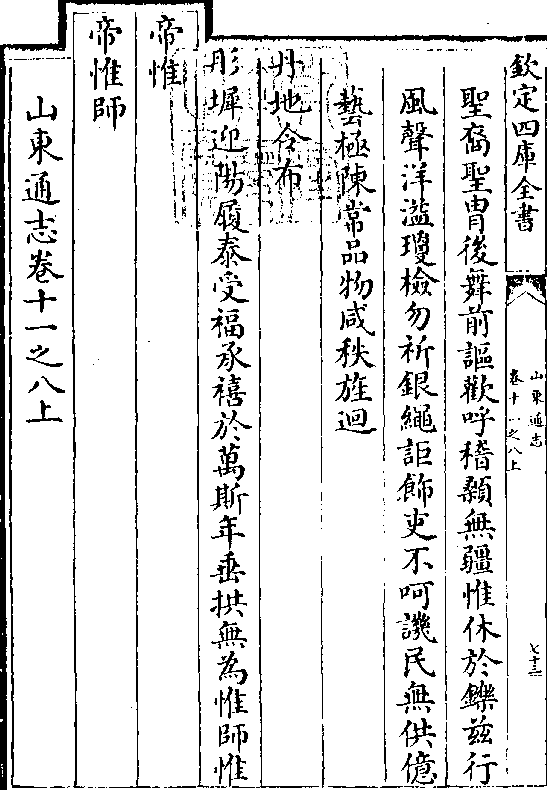 欽定四庫全書
山東通志
卷十一之八上
七十三
聖裔聖胄後舞前謳歡呼稽顙無疆惟休於鑠茲行
風聲洋溢瓊檢勿祈銀繩詎飾吏不呵譏民無供億
藝極陳常品物咸秩旌迴
丹地令布
彤墀迎陽履泰受福承禧於萬斯年垂拱無為惟師惟
帝惟
帝惟師
山東通志卷十一之八上